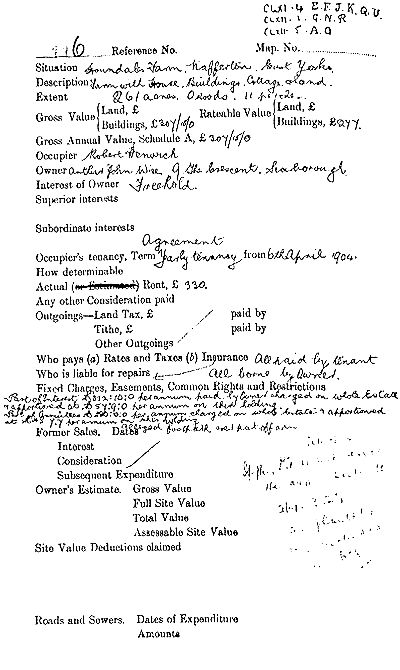 CLXI . 4 E.F.J.K.Q.U.
CLXII . 1 . G.N.R
CLXII . 5 . A.G
Reference No. Map. No.
Situation Farm, Nafferton, East Yorks
Description Farm with House, Buildings, Cottage & land.
Extent 261 acres, 0 roods. 11 perches.
Gross Value Land, £ Buildings, £ 207/10/0 Rateable Value Land, £ Buildings, £277.
Gross Annual Value, Schedule A, £ 207/10/0
Occupier Robert
Owner Arthur John Wise 9 The Crescent, Scarborough
Interest of Owner Freehold.
Superior interests
Subordinate interests
Agreement
Occupier's tenancy, Term Yearly tenancy, from 6th April 1904.
How determinable
Actual (or Estimated) Rent, £ 330.
Any other Consideration paid
Outgoings—Land Tax, £ paid by
Tithe, £ paid by
Other Outgoings
Who pays (a) Rates and Taxes (b) Insurance All paid by tenant
Who is liable for repairs All borne by Owner.
Fixed Charges, Easements, Common Rights and Restrictions
per annum paid by Owner charged on whole Estate
apportioned at per annum on this holding
per annum charged on whole Estate & apportioned
at per annum on this holding
Former Sales. Dates foot path over part of farm
Interest
Consideration
Subsequent Expenditure
Owner's Estimate. Gross Value
Full Site Value
Total Value
Assessable Site Value
Site Value Deductions claimed
Roads and Sewers. Dates of Expenditure
Amounts